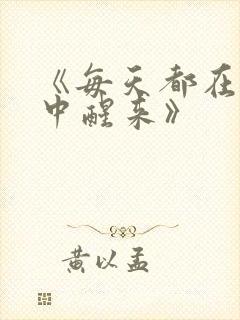 《每天都在
中醒来》
黄以孟